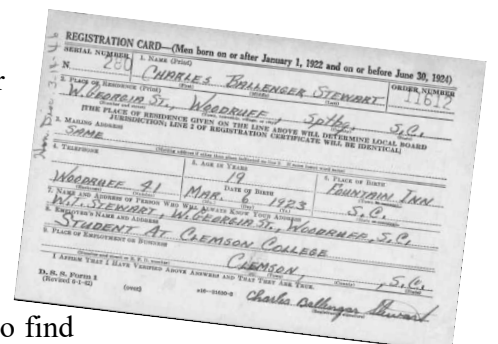 r
REGISTRATION CARD—(Men born on or after January 1, 1922 and on or before June 30, 1924)
SERIAL NUMBER 1. NAME (Print) ORDER NUMBER
N 280 CHARLES BALLENGER STEWART 11612
2. PLACE OF RESIDENCE (Print)
W. GEORGIA ST., WOODRUFF, Sptbg. S.C.
[THE PLACE OF RESIDENCE GIVEN ON THE LINE ABOVE WILL DETERMINE LOCAL BOARD
JURISDICTION; LINE 2 OF REGISTRATION CERTIFICATE WILL BE IDENTICAL]
3. MAILING ADDRESS
SAME
4. TELEPHONE 5. AGE IN YEARS 6. PLACE OF BIRTH
19 FOUNTAIN INN
DATE OF BIRTH
WOODRUFF 41 MAR. 6 1923 S.C.
7. NAME AND ADDRESS OF PERSON WHO WILL ALWAYS KNOW YOUR ADDRESS
W.T. STEWART, W. GEORGIA ST., WOODRUFF, S.C.
8. EMPLOYER'S NAME AND ADDRESS
STUDENT AT CLEMSON COLLEGE
9. PLACE OF EMPLOYMENT OR BUSINESS
CLEMSON, S.C.
I AFFIRM THAT I HAVE VERIFIED ABOVE ANSWERS AND THAT THEY ARE TRUE.
D. S. S. Form 1
(Revised 6-1-42) (over) Charles Ballenger Stewart
o find